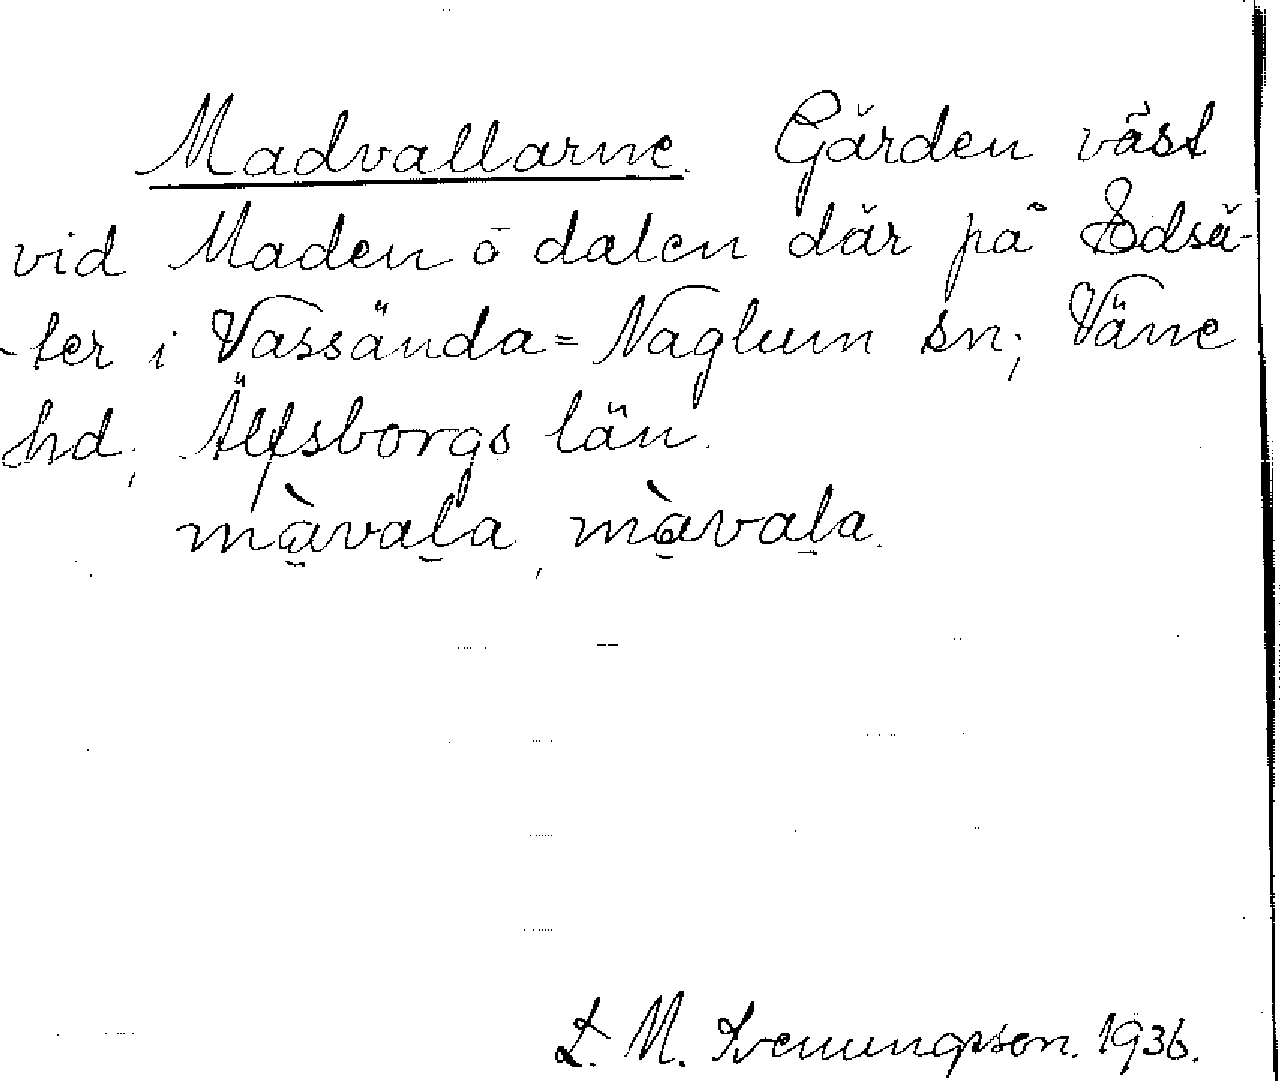 Madvallarne. Gärden väst
vid Maden ō dalen där på Edsä-
-ter i Vassända=Naglum sn; Väne
hd; Älfsborgs län.
màvala, màvala.
L. M. Svenungsson. 1936.